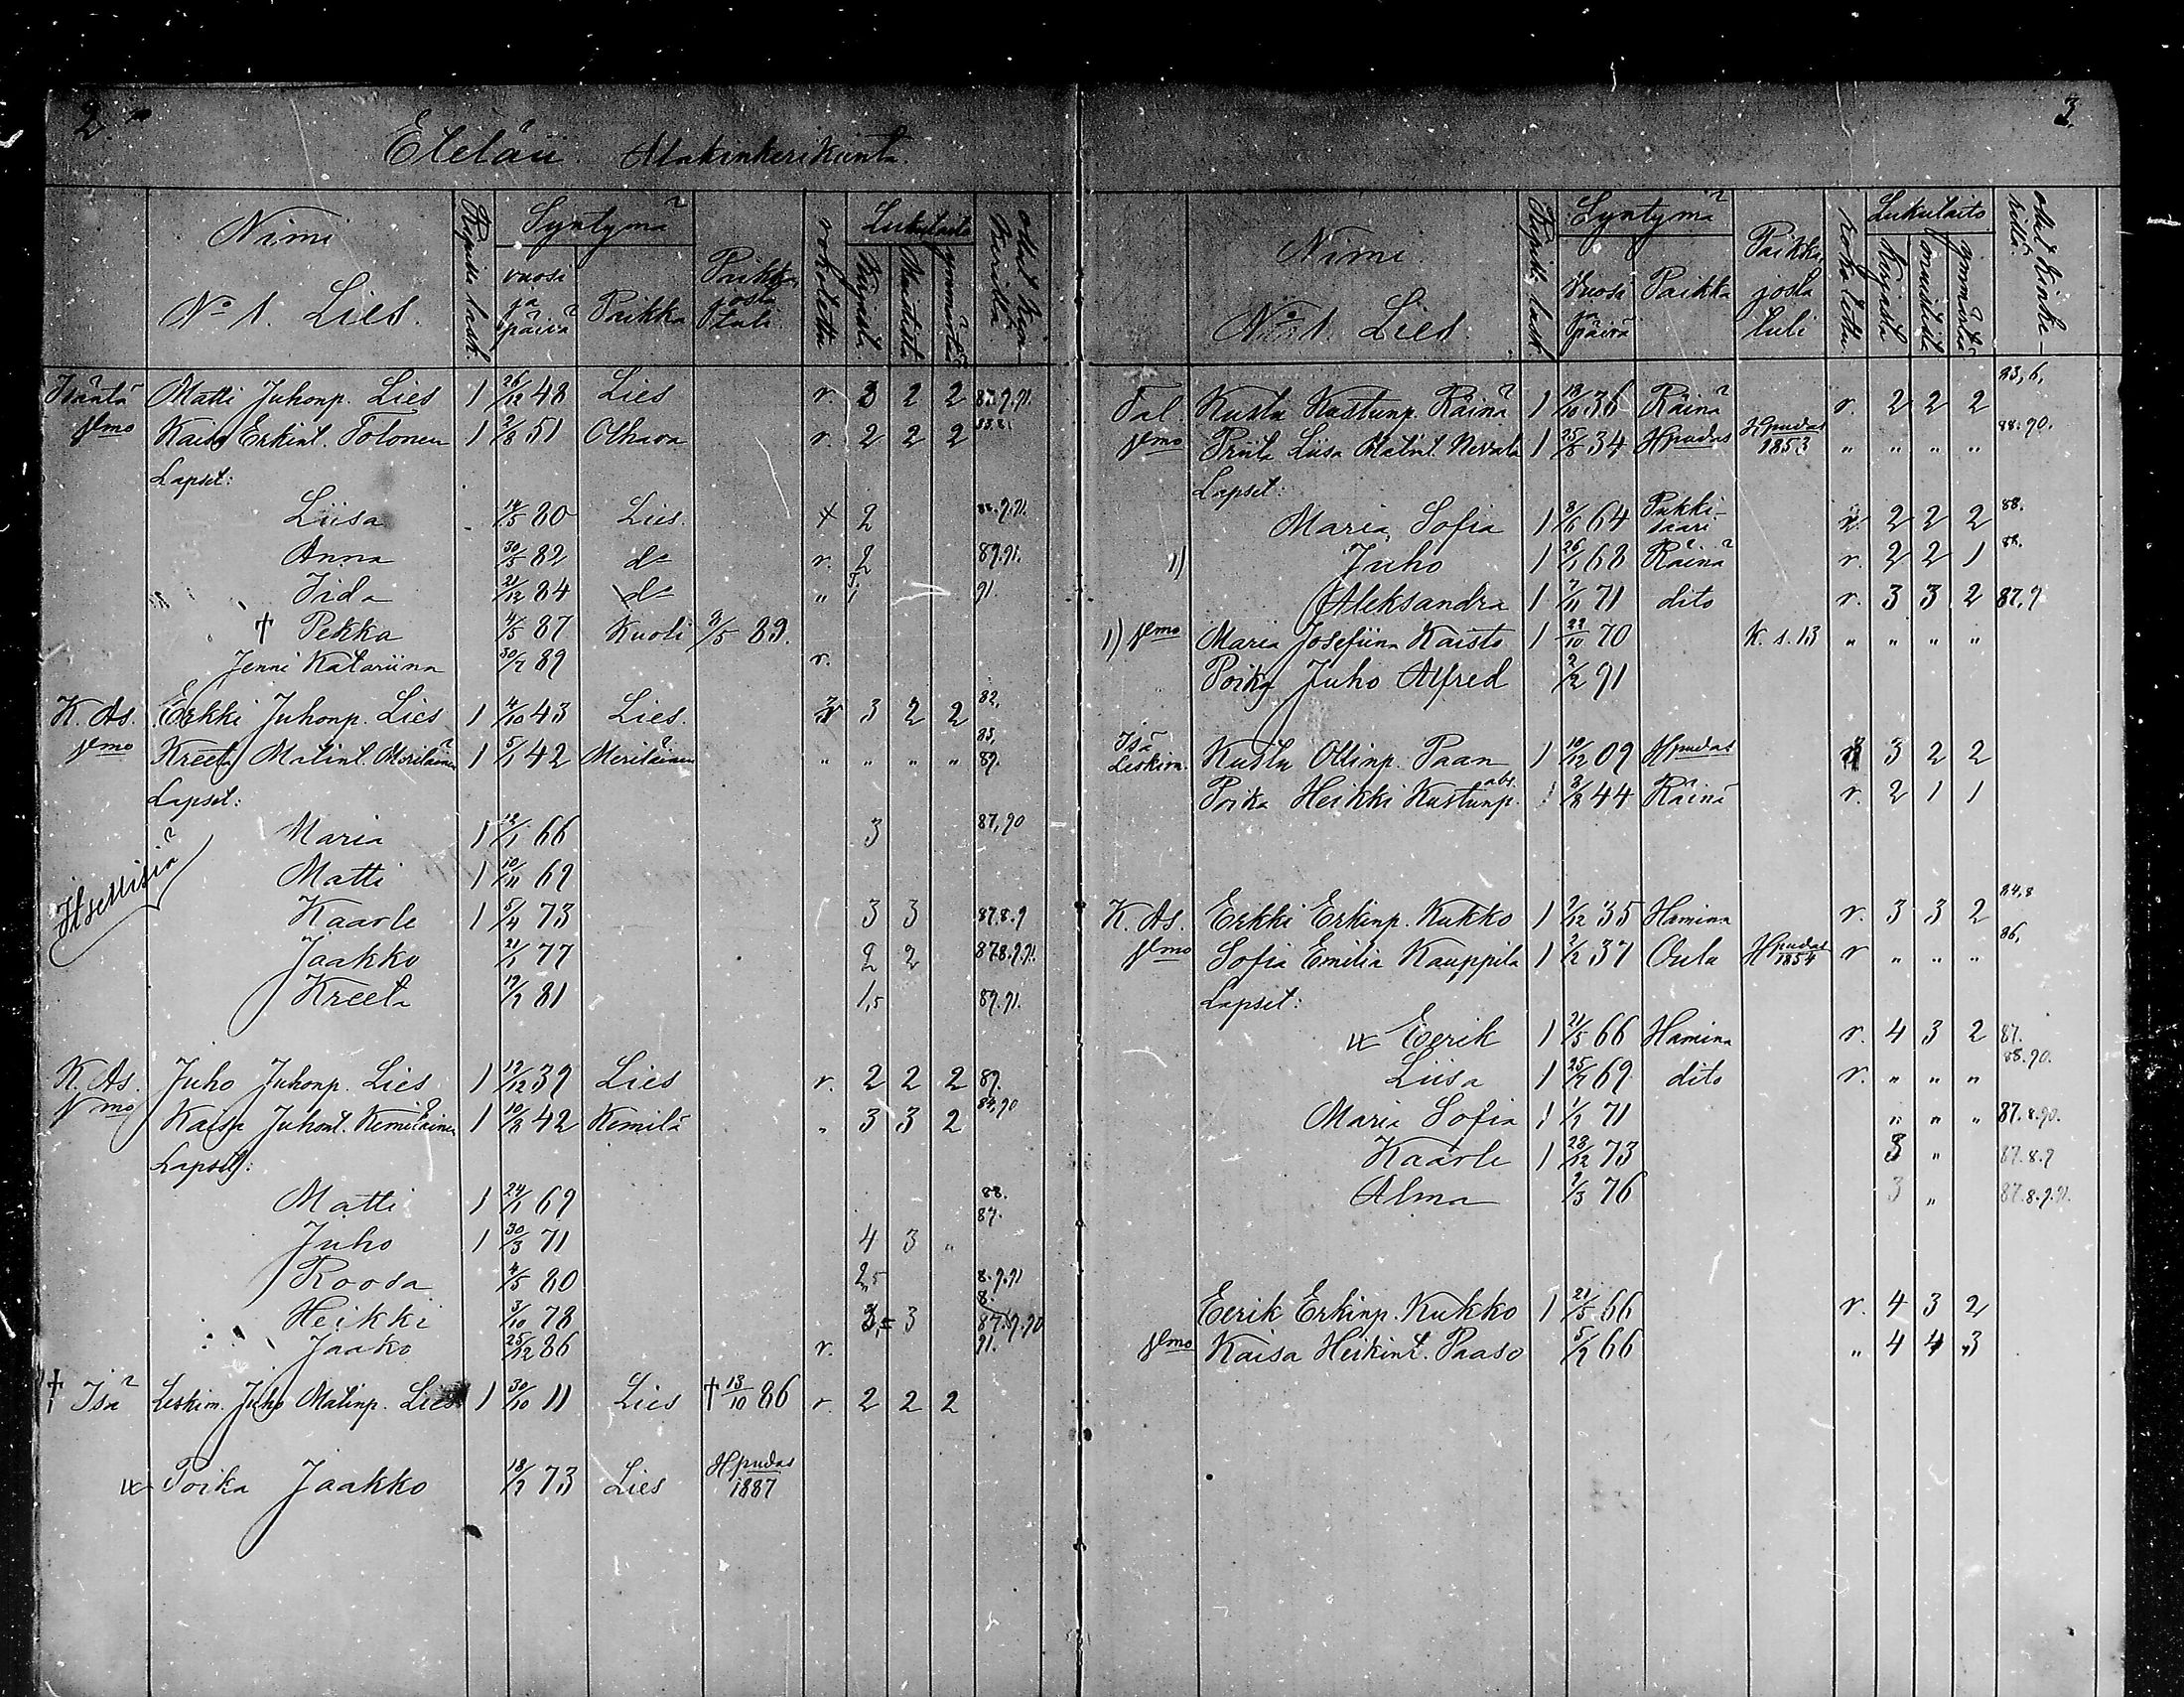 2.
Eteläii. Alakinkerikunta.
Nimi
No 1. Lies.
Ripille lask.
Syntymä
vuosi ja päivä
Paikka
Paikka, josta tuli.
rokotettu
Lukutaito
Kirjasta
Muistista
ymmärtä
ollut Kinkerillä
Isäntä Matti Juhonp. Lies 1 26/12 48 Lies r. 3 2 2 87.9.91.
Vmo Kaisa Erkint. Tolonen 1 2/8 51 Olhava r. 2 2 2 83.81
Lapset:
Liisa 14/5 80 Lies. + 2 88.9.91.
Anna 30/5 82 do r. 2 89.91.
Iida 21/12 84 do " 1 91.
† Pekka 4/5 87 Kuoli 3/5 89.
Jenni Katariina 30/7 89 r.
K. As. Erkki Juhonp. Lies 1 4/10 43 Lies. r 3 2 2 82,
Vmo Kreeta Matint. Meriläinen 1 5/1 42 Meriläinen " " " " 85, 89.
Lapset:
Itsellisiä
Maria 1 12/1 66 3 87,90
Matti 1 10/11 69
Kaarle 1 5/4 73 3 3 87.8.9
Jaakko 21/1 77 2 2 87.8.9.91.
Kreeta 17/7 81 1,5 89.91.
K. As. Juho Juhonp. Lies 1 17/12 39 Lies r. 2 2 2 89.
Vmo Kaisa Juhont. Kemiläinen 1 10/8 42 Kemilä " 3 3 2 84,90
Lapset:
Matti 1 24/1 69 88.
Juho 1 30/3 71 4 3 " 87.
Roosa 4/5 80 2,5 8.9.91
Heikki 3/10 78 3,5 3 8. 87.8.9.90
Jaako 25/12 86 r. 91.
† Isä Leskim. Juho Matinp. Lies 1 30/10 11 Lies † 13/10 86 r. 2 2 2
Poika Jaakko 18/7 73 Lies Hpudas 1887
3.
Nimi.
No 1. Lies.
Ripille lask.
Syntymä
Vuosi ja päivä
Paikka
Paikka, josta tuli
rokotettu.
Lukutaito
Kirjasta
muistista
ymmärtä
ollut kinkerillä.
Tal. Kusta Kustunp. Räinä 1 18/10 36 Räinä r. 2 2 2 83,6,
Vmo Priita Liisa Matint. Nevala 1 25/8 34 Hpudas Hpudas 1853 " " " " 88.90.
Lapset:
Maria Sofia 1 8/6 64 Pukkisaari r. 2 2 2 88.
1) Juho 1 26/1 68 Räinä r. 2 2 1 88.
Aleksandra 1 7/11 71 dito r. 3 3 2 87,9
1) Vmo Maria Josefiina Kaisto 1 22/10 70 K. s. 13 " " " "
Poika Juho Alfred 2/2 91
Isä Leskim. Kusta Ollinp. Paan 1 10/12 09 Hpudas 3 2 2
Poika Heikki Kustunp. abs. 1 3/8 44 Räinä r. 2 1 1
K. As. Erkki Erkinp. Kukko 1 2/12 35 Hamina r. 3 3 2 84,8
Vmo Sofia Emilia Kauppila 1 2/2 37 Oulu Hpudas 1854 r " " " 86,
Lapset:
Eerik 1 21/5 66 Hamina r. 4 3 2 87.
Liisa 1 25/7 69 dito r. " " " 88.90.
Maria Sofia 1 1/7 71 " " " 87.8.90.
Kaarle 1 28/12 73 3 " 87.8.9
Alma 2/3 76 3 " 87.8.9.91.
Eerik Erkinp. Kukko 1 21/5 66 r. 4 3 2
Vmo Kaisa Heikint. Paaso 5/7 66 " 4 4 3